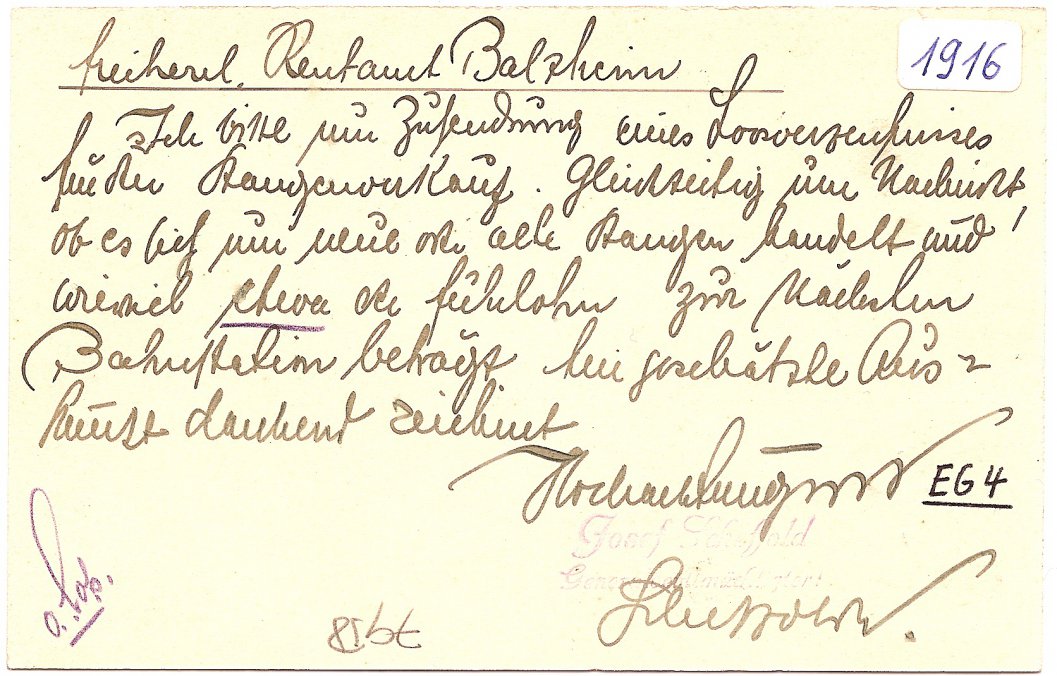 freiherrl. Rentamt Balzheim
1916
Ich bitte um Zusendung eines Losverzeichnisses
für den Stangenverkauf. Gleichzeitig um Nachricht,
ob es sich um neue oder alte Stangen handelt und
wieviel etwa der Fuhrlohn zur nächsten
Bahnstation beträgt. Für geschätzte Aus-
kunft dankend zeichnet
Hochachtungsvoll
EG 4
Josef Scheffold
Scheffold.